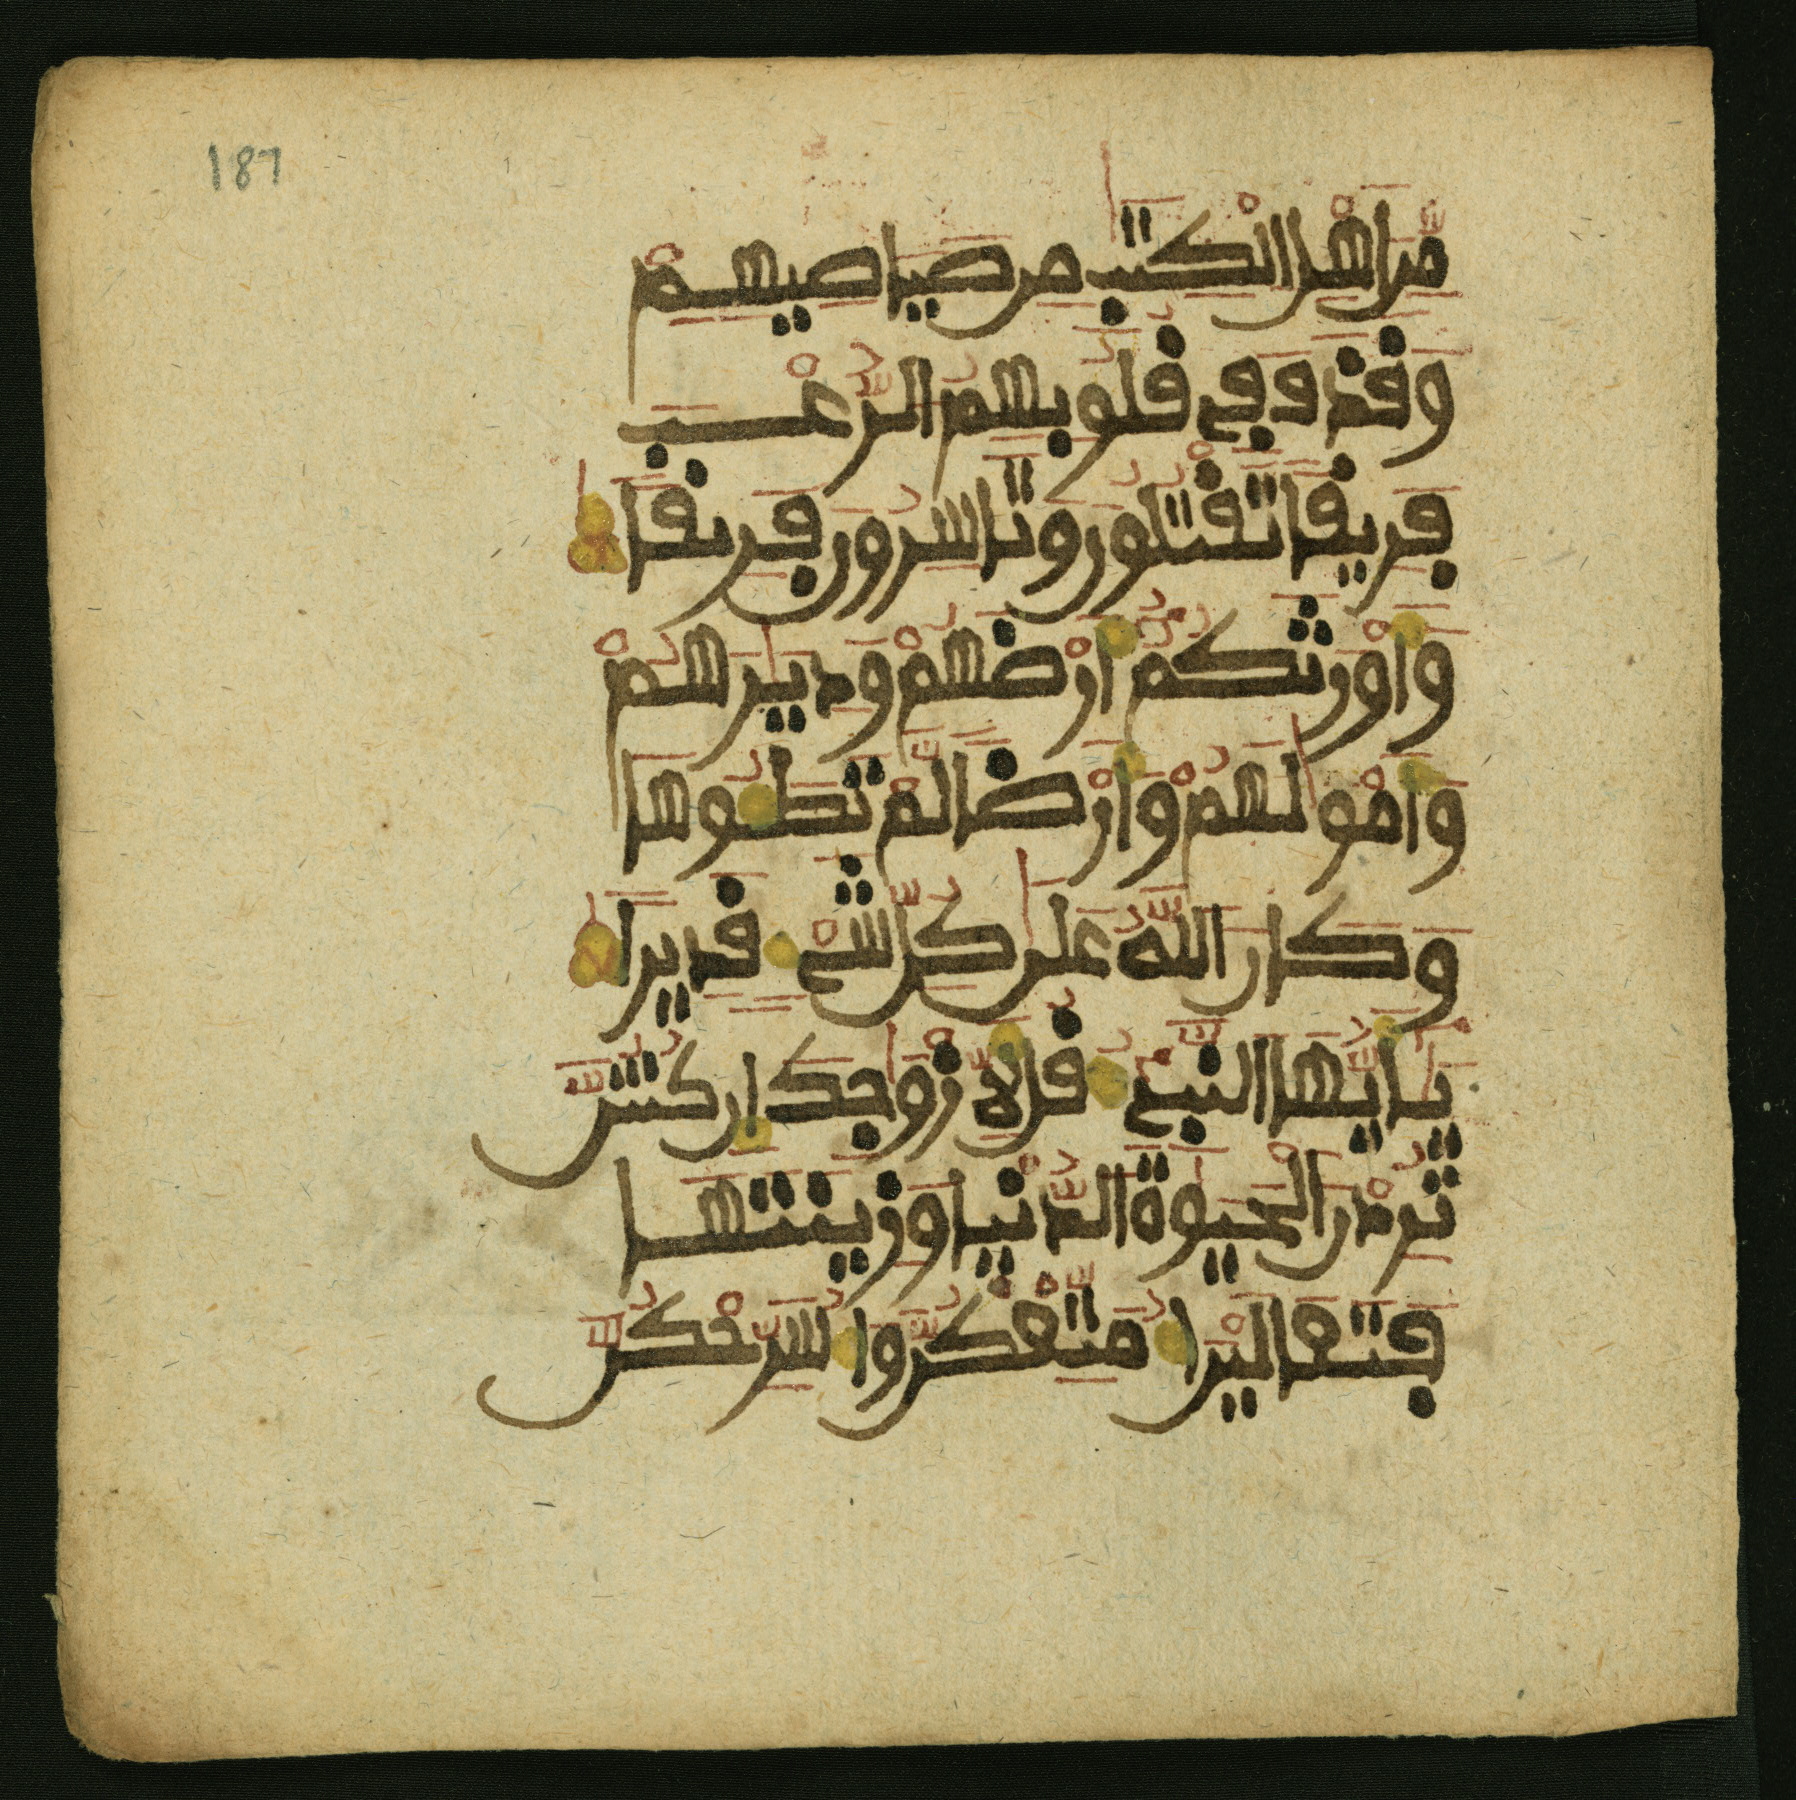 187
مّن اهْل الْكتب من صياصيهمْ
وقذف في قلوبهم الرّعْب
فريقا تقْتلون وتاسرون فريقا
واوْرثكم ارْضهمْ وديرهمْ
وامْولهمْ وارْضا لّمْ تطوها
وكان اللّه على كلّ شيْء قديرا
يايّها النّبيء قل لّازْوجك ان كنتنّ
تردْن الْحيوة الدّنْيا وزينتها
فتعاليْن امتّعْكنّ واسرّحْكنّ